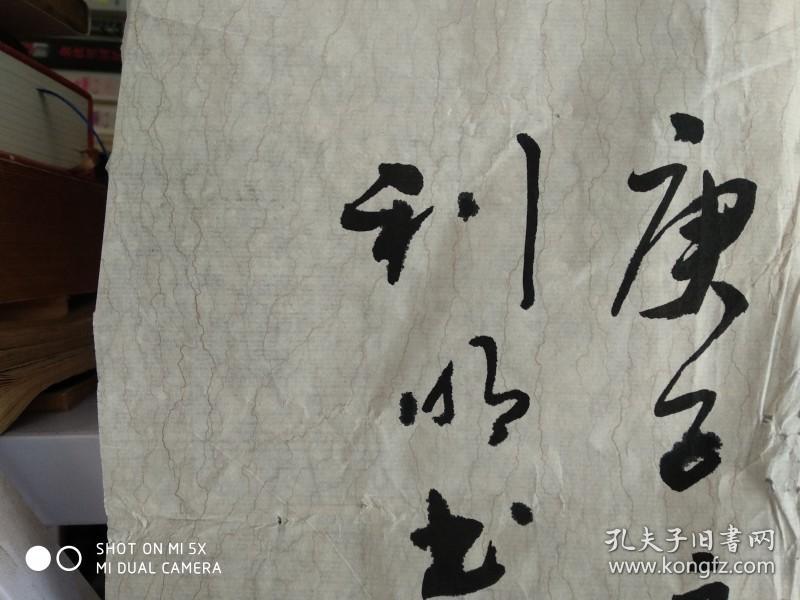 庚子
利明书
SHOT ON MI 5X
MI DUAL CAMERA
孔夫子旧書网
www.kongfz.com